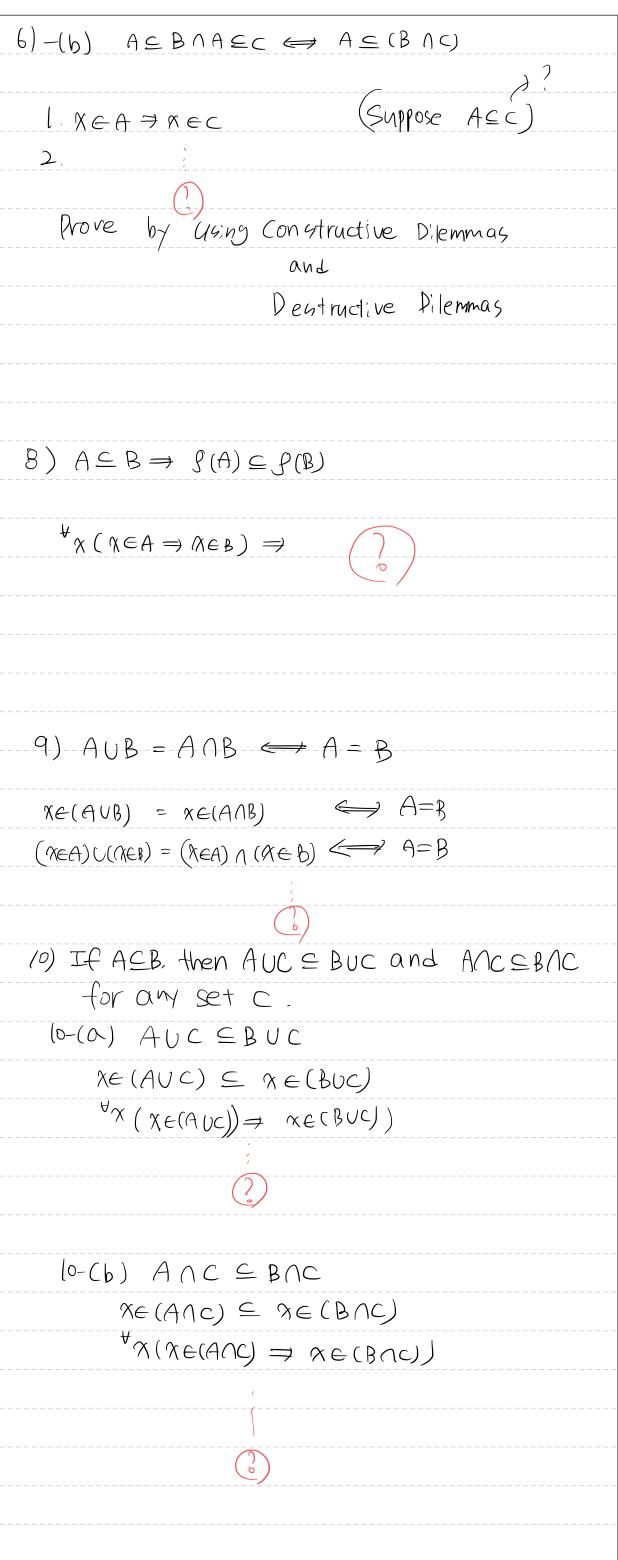 6)-(b) A⊆B∩A⊆C ⟺ A⊆(B∩C)
?
1. x∈A ⇒ x∈C (Suppose A⊆C)
2.
?
Prove by using Constructive Dilemmas
and
Destructive Dilemmas
8) A⊆B ⇒ ℘(A)⊆℘(B)
∀x(x∈A ⇒ x∈B) ⇒ ?
9) A∪B = A∩B ⟺ A = B
x∈(A∪B) = x∈(A∩B) ⟺ A=B
(x∈A)∪(x∈B) = (x∈A)∩(x∈B) ⟺ A=B
?
10) If A⊆B, then A∪C⊆B∪C and A∩C⊆B∩C
for any set C.
10-(a) A∪C⊆B∪C
x∈(A∪C) ⊆ x∈(B∪C)
∀x(x∈(A∪C)) ⇒ x∈(B∪C))
?
10-(b) A∩C ⊆ B∩C
x∈(A∩C) ⊆ x∈(B∩C)
∀x(x∈(A∩C) ⇒ x∈(B∩C))
?